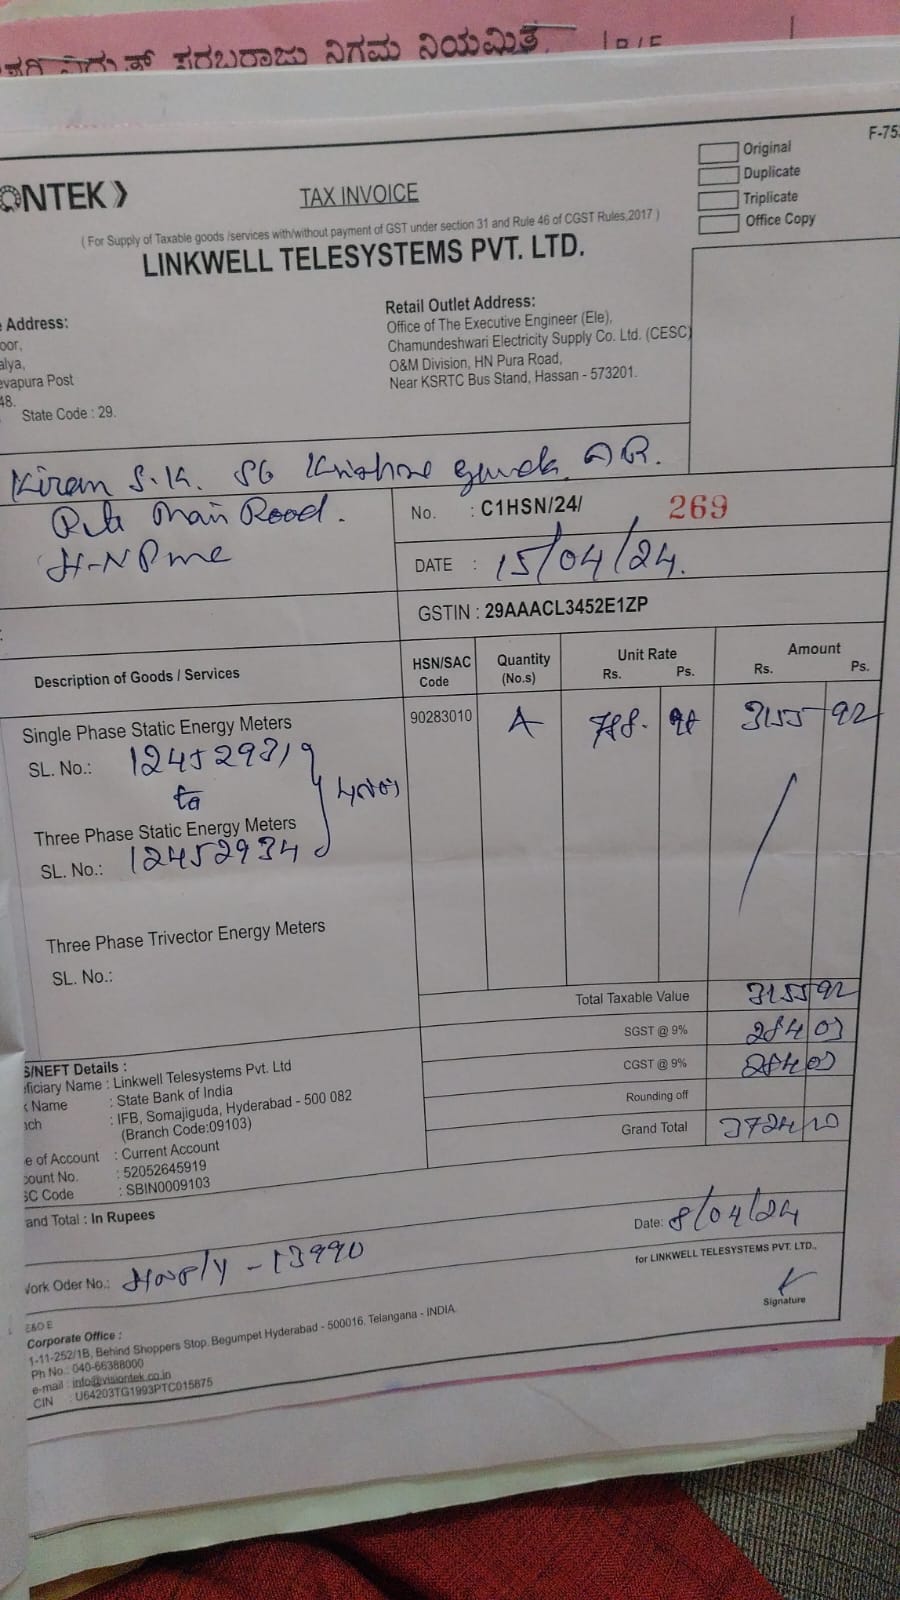 ಸರಬರಾಜು ನಿಗಮ ನಿಯಮಿತ
F-75
ONTEK
TAX INVOICE
Original
Duplicate
Triplicate
Office Copy
( For Supply of Taxable goods /services with/without payment of GST under section 31 and Rule 46 of CGST Rules,2017 )
LINKWELL TELESYSTEMS PVT. LTD.
Address:
oor,
alya,
evapura Post
48.
State Code : 29.
Retail Outlet Address:
Office of The Executive Engineer (Ele),
Chamundeshwari Electricity Supply Co. Ltd. (CESC)
O&M Division, HN Pura Road,
Near KSRTC Bus Stand, Hassan - 573201.
Kiran S.K. S/o
Main Road.
No. : C1HSN/24/ 269
DATE : 15/04/24.
GSTIN : 29AAACL3452E1ZP
Description of Goods / Services
HSN/SAC Code
Quantity (No.s)
Unit Rate Rs. Ps.
Amount Rs. Ps.
Single Phase Static Energy Meters 90283010 4 788. 98 3155 92
SL. No.: 12452931
to
4nos
Three Phase Static Energy Meters
SL. No.: 12452934
Three Phase Trivector Energy Meters
SL. No.:
Total Taxable Value 3155 92
SGST @ 9% 284 03
CGST @ 9% 284 03
Rounding off
Grand Total 3724 00
S/NEFT Details :
ficiary Name : Linkwell Telesystems Pvt. Ltd
Name : State Bank of India
ch : IFB, Somajiguda, Hyderabad - 500 082
(Branch Code:09103)
e of Account : Current Account
count No. : 52052645919
SC Code : SBIN0009103
and Total : In Rupees
Date: 8/04/24
for LINKWELL TELESYSTEMS PVT. LTD.,
Work Oder No.: 13990
Signature
E&O E
Corporate Office :
1-11-252/1B, Behind Shoppers Stop, Begumpet Hyderabad - 500016. Telangana - INDIA
Ph No.: 040-66388000
e-mail : info@visiontek.co.in
CIN : U64203TG1993PTC015875